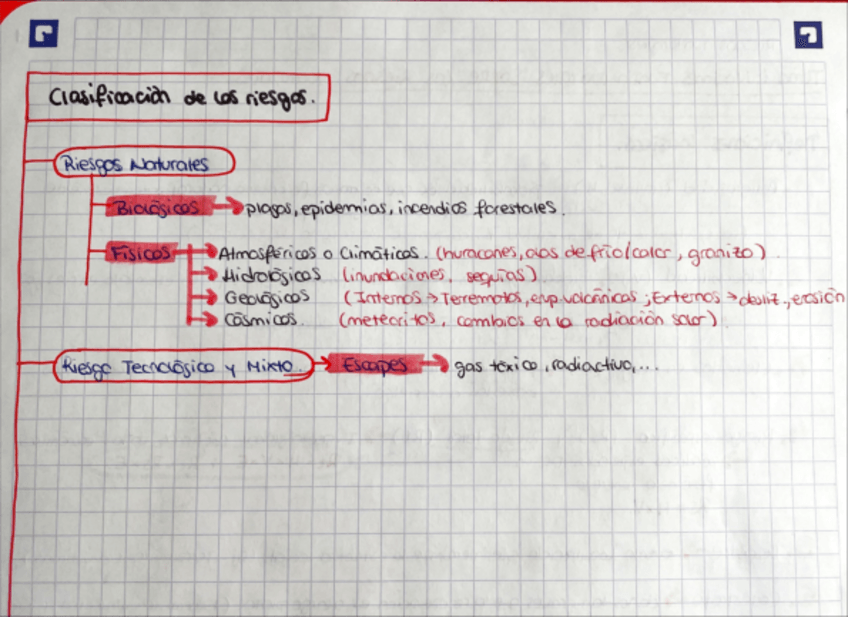 Clasificación de los riesgos.
Riesgos Naturales
Biológicos → plagas, epidemias, incendios forestales.
Físicos → Atmosféricos o Climáticos. (huracanes, olas de frío/calor, granizo)
→ Hidrológicos (inundaciones, sequías)
→ Geológicos (Internos → Terremotos, erup. volcánicas; Externos → desliz., erosión
→ Cósmicos. (meteoritos, cambios en la radiación solar)
Riesgo Tecnológico y Mixto. → Escapes → gas tóxico, radiactivo,...